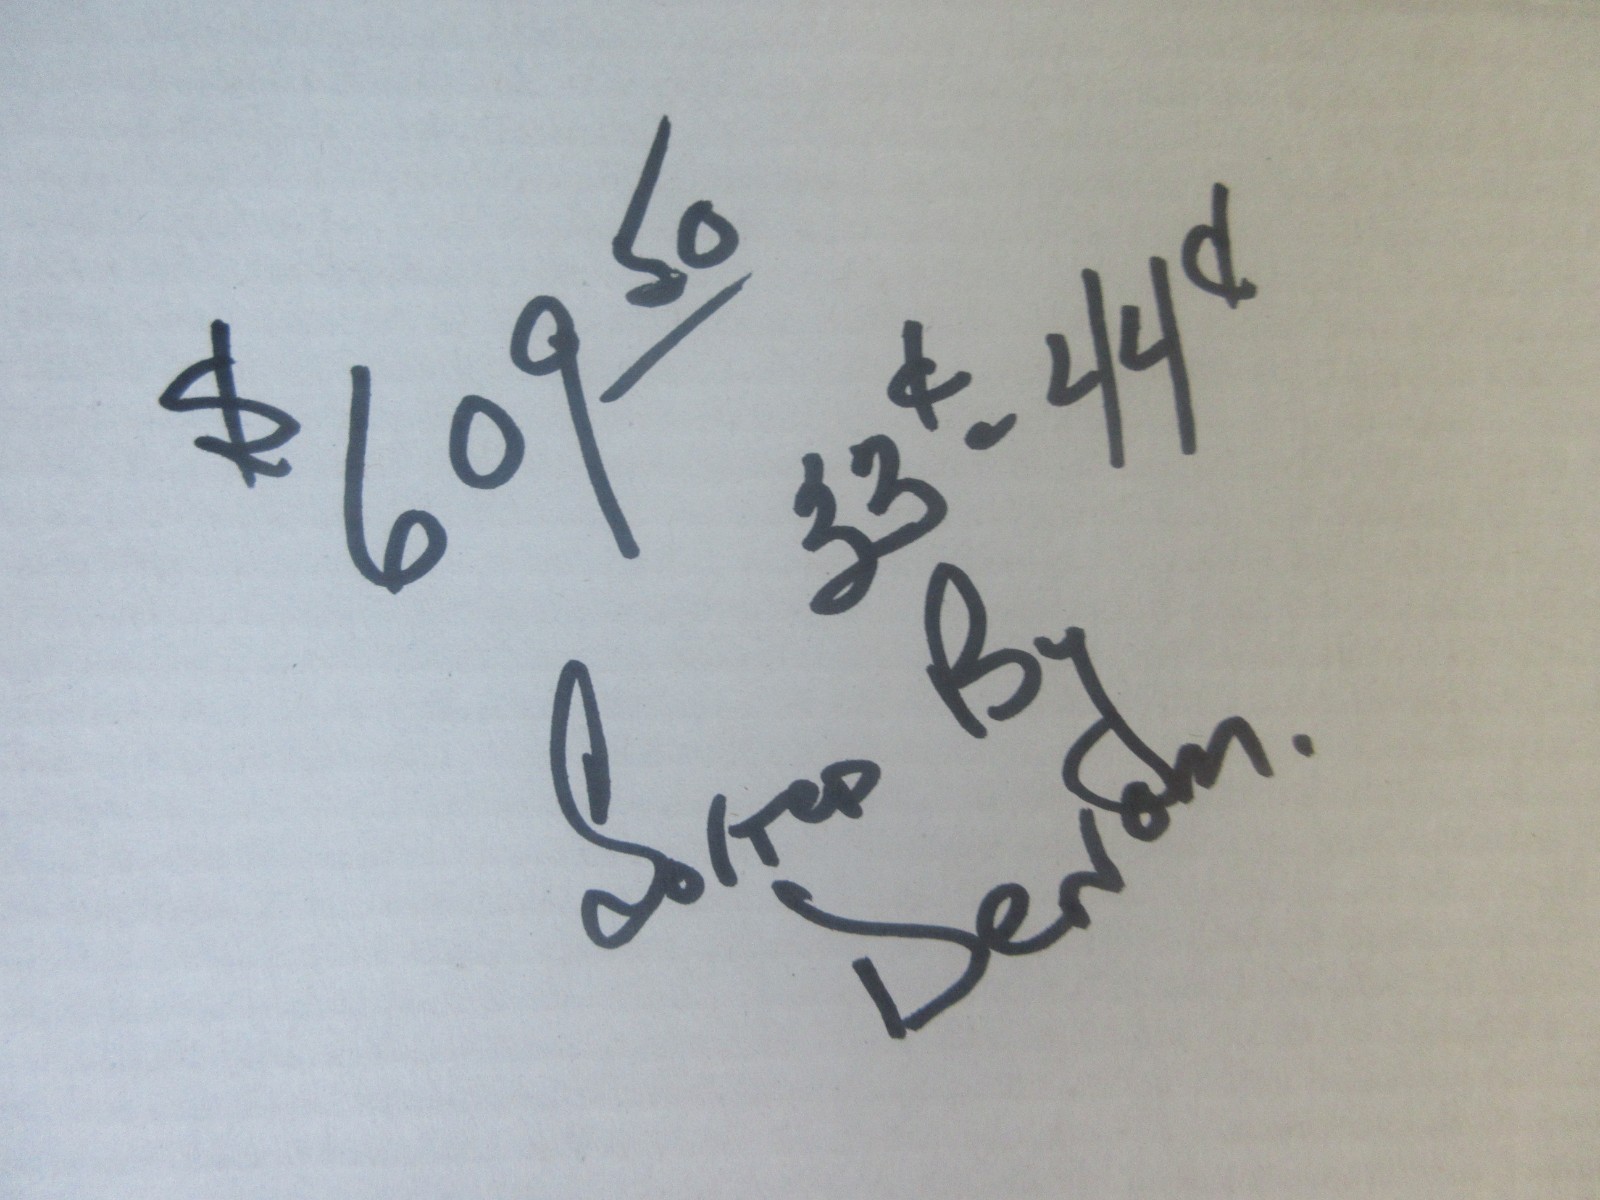 $609 50
33¢ - 44¢
Sorted By
Denom.